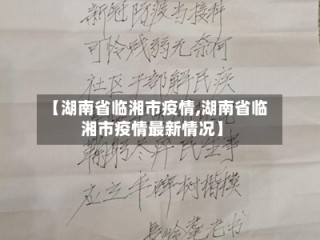 新冠防疫当接种
可怜残弱无奈何
社区干部解民疾
【湖南省临湘市疫情,湖南省临
湘市疫情最新情况】
鞠躬尽瘁民生事
建立丰碑树楷模